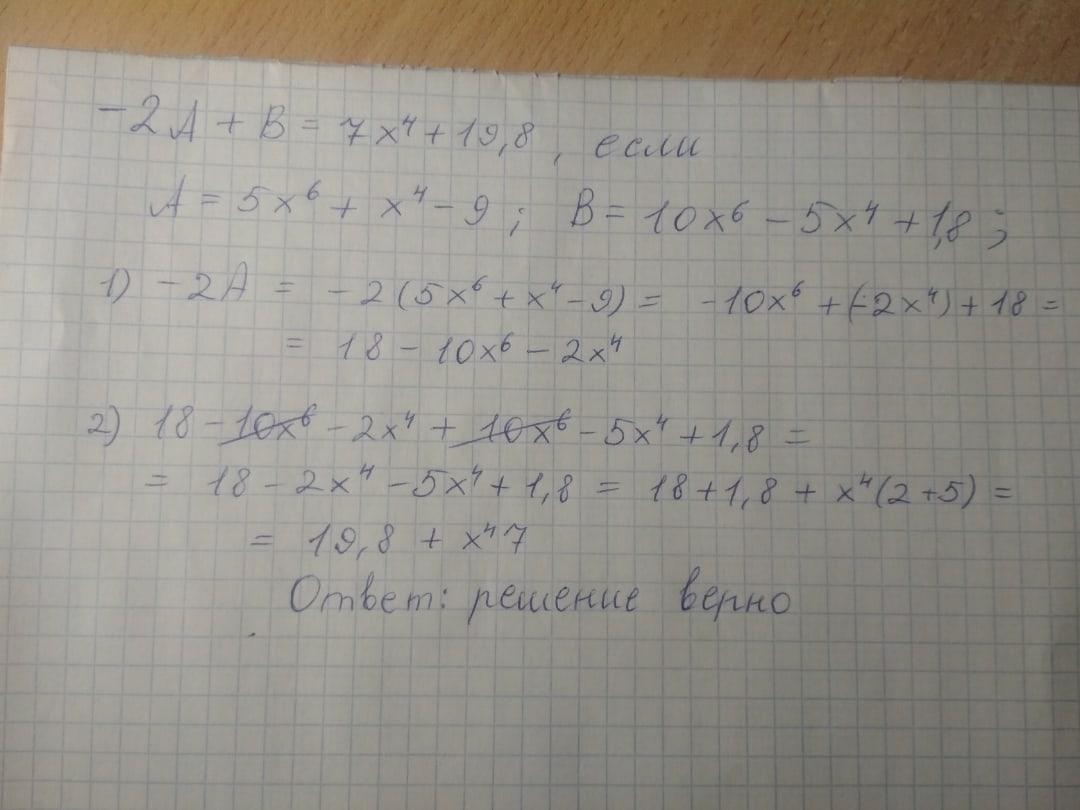 -2A + B = 7x⁴ + 19,8 , если
A = 5x⁶ + x⁴ - 9 ; B = 10x⁶ - 5x⁴ + 1,8 ;
1) -2A = -2(5x⁶ + x⁴ - 9) = -10x⁶ + (-2x⁴) + 18 =
= 18 - 10x⁶ - 2x⁴
2) 18 - 10x⁶ - 2x⁴ + 10x⁶ - 5x⁴ + 1,8 =
= 18 - 2x⁴ - 5x⁴ + 1,8 = 18 + 1,8 + x⁴(2 + 5) =
= 19,8 + x⁴7
Ответ: решение верно